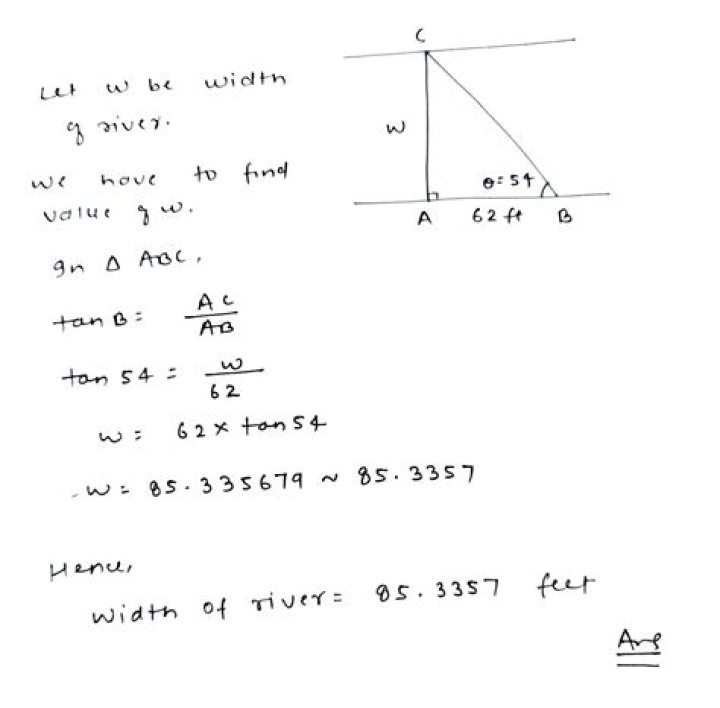 C
Let w be width
of river.
w
We have to find
θ = 54
value of w.
A 62 ft B
In Δ ABC,
tan B = AC / AB
tan 54 = w / 62
w = 62 × tan 54
w = 85.335679 ~ 85.3357
Hence,
Width of river = 85.3357 feet
Ans